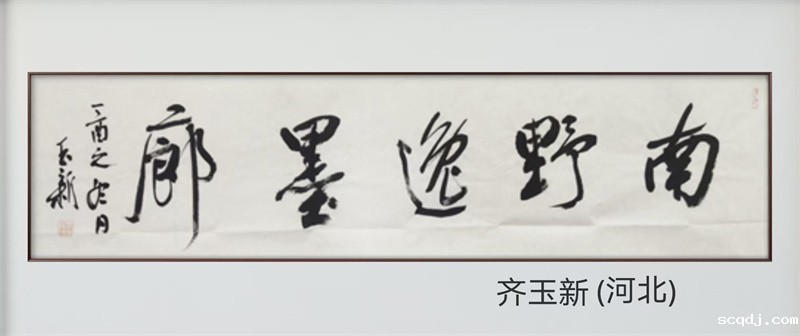 南野逸墨廊
丁酉之冬月
玉新
齐玉新 (河北)
scqdj.com